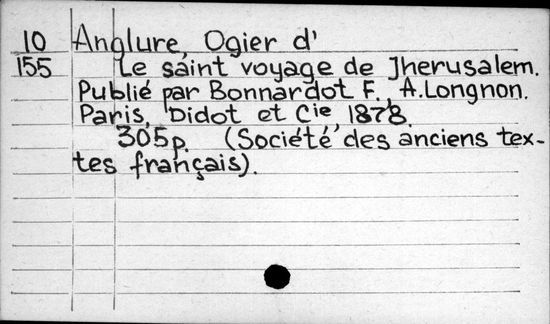 10 Anglure, Ogier d'
155 Le saint voyage de Jherusalem.
Publié par Bonnardot F., A. Longnon.
Paris, Didot et Cie 1878.
305p. (Société des anciens tex-
tes français).